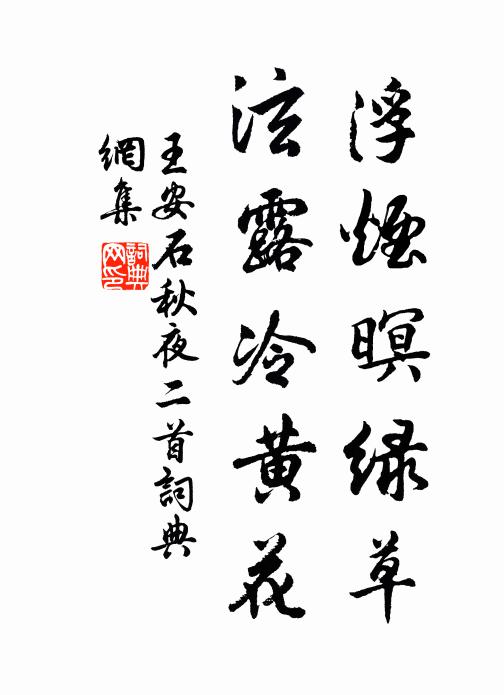 浮煙暝绿草
泫露冷黄花
王安石秋夜二首詞典
網集
詞典
网印